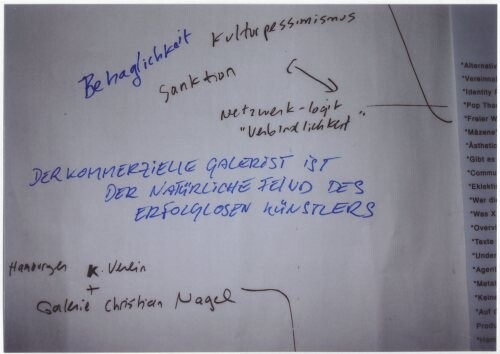 Behaglichkeit Kulturpessimismus
Sanktion
Netzwerk-logik
"Verbindlichkeit"
DER KOMMERZIELLE GALERIST IST
DER NATÜRLICHE FEIND DES
ERFOLGLOSEN KÜNSTLERS
Hamburger K. Verein
+
Galerie Christian Nagel
*Alternativ
*Vereinna
*Identity
*Pop Tho
*Freier W
*Mäzene
*Ästhetic
*Gibt es
*Commu
*Eklekti
*Wer di
*Was X
*Overvi
*Texte
*Under
*Agent
*Metat
*Keine
*Auf
Produ